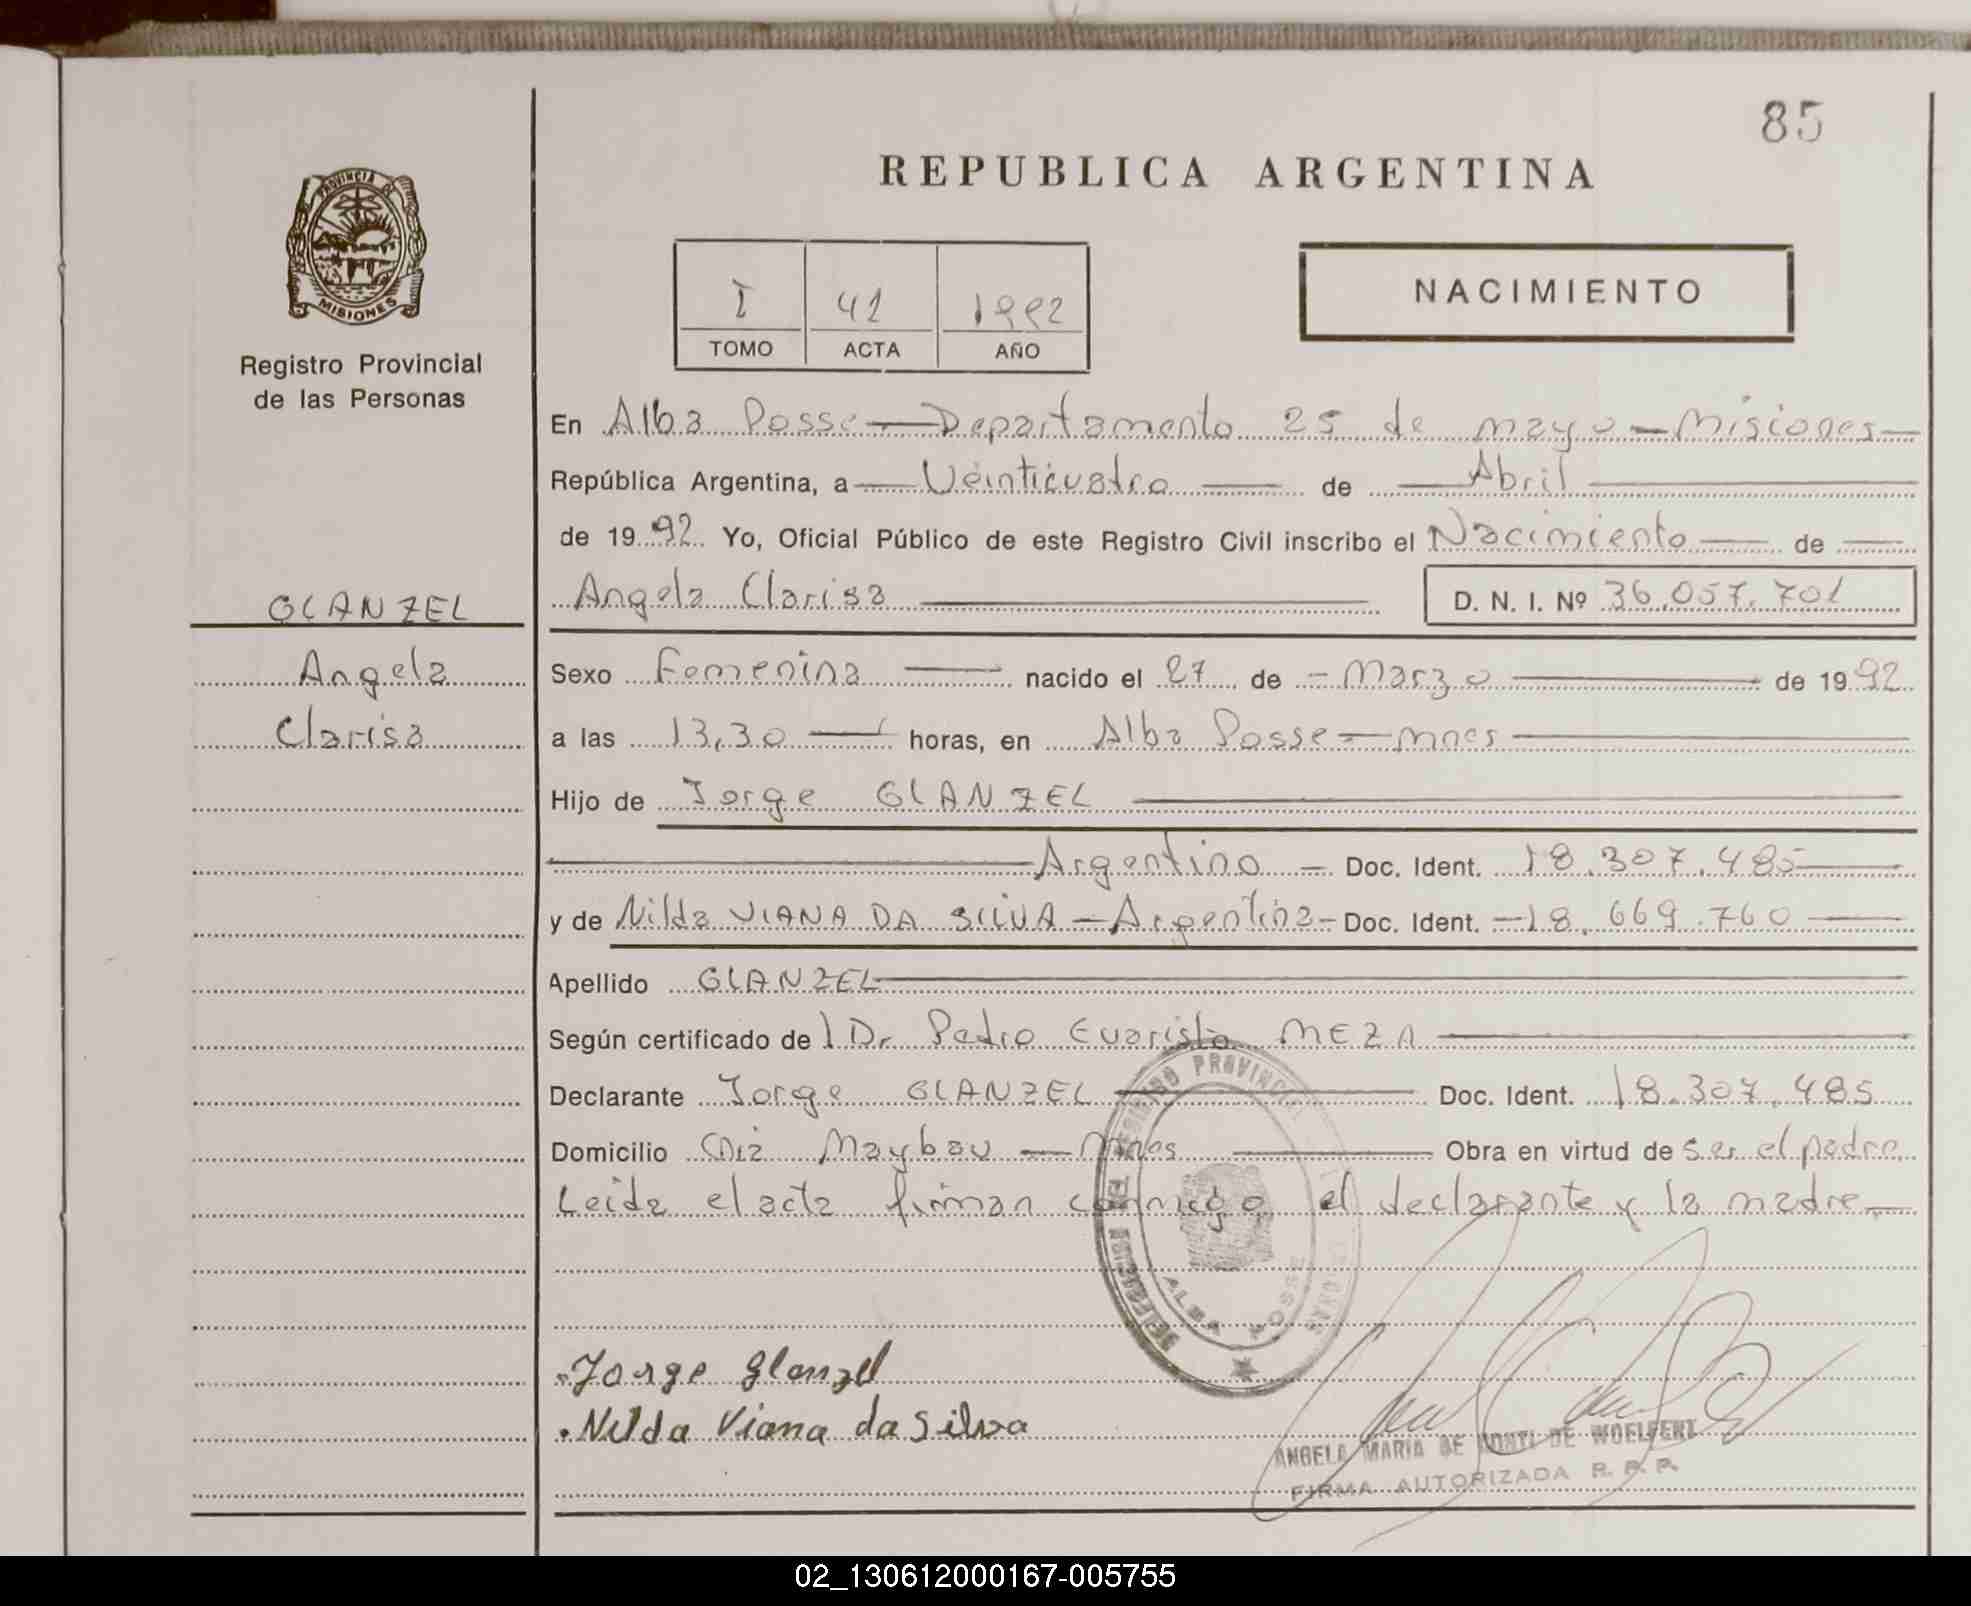 85
REPUBLICA ARGENTINA
PROVINCIA DE
MISIONES
Registro Provincial
de las Personas
I 41 1992
TOMO ACTA AÑO
NACIMIENTO
En Alba Posse — Departamento 25 de mayo — Misiones —
República Argentina, a — Veinticuatro — de — Abril —
de 1992. Yo, Oficial Público de este Registro Civil inscribo el Nacimiento — de —
GLANZEL
Angela Clarisa — D. N. I. Nº 36.057.701
Angela
Clarisa
Sexo Femenina — nacido el 27 de — Marzo — de 1992
a las 13,30 — horas, en Alba Posse — Mnes —
Hijo de Jorge GLANZEL —
— Argentino — Doc. Ident. 18.307.485 —
y de Nilda VIANA DA SILVA — Argentina — Doc. Ident. — 18.669.760 —
Apellido GLANZEL —
Según certificado del Dr Pedro Evaristo MEZA —
Declarante Jorge GLANZEL — Doc. Ident. 18.307.485
Domicilio Cnia Maybau — Mnes — Obra en virtud de ser el padre
Leida el acta firman conmigo el declarante y la madre —
REGISTRO PROVINCIAL
ALBA POSSE
Jorge Glanzel
Nilda Viana da Silva
ANGELA MARIA DE CONTI DE WOELFERT
FIRMA AUTORIZADA R. P. P.
02_130612000167-005755